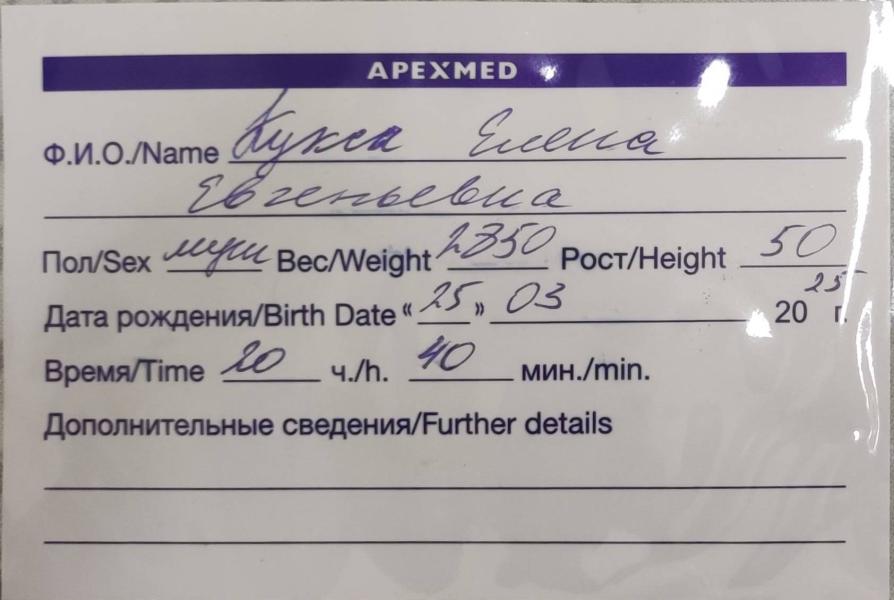 APEXMED
Ф.И.О./Name Кукса Елена
Евгеньевна
Пол/Sex муж Вес/Weight 2850 Рост/Height 50
Дата рождения/Birth Date “25” 03 2025 г.
Время/Time 20 ч./h. 40 мин./min.
Дополнительные сведения/Further details